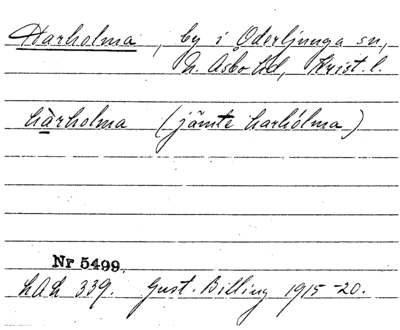 Harholma, by i Oderljunga sn,
N. Åsbo hd, Krist. l.
hàrholma (jämte harhólma)
Nr 5499.
LAL 339. Gust. Billing 1915-20.